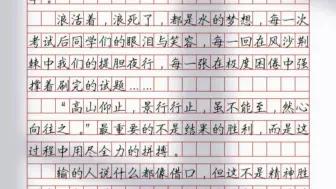 浪活着，浪死了，都是水的梦想，每一次
考试后同学们的眼泪与笑容，每一回在风沙荆
棘中我们的提胆夜行，每一张在极度困倦中强
撑着刷完的试题……
“高山仰止，景行行止，虽不能至，然心
向往之。”最重要的不是结果的胜利，而是这
过程中用尽全力的拼搏。
输的人说什么都像借口，但这不是精神胜